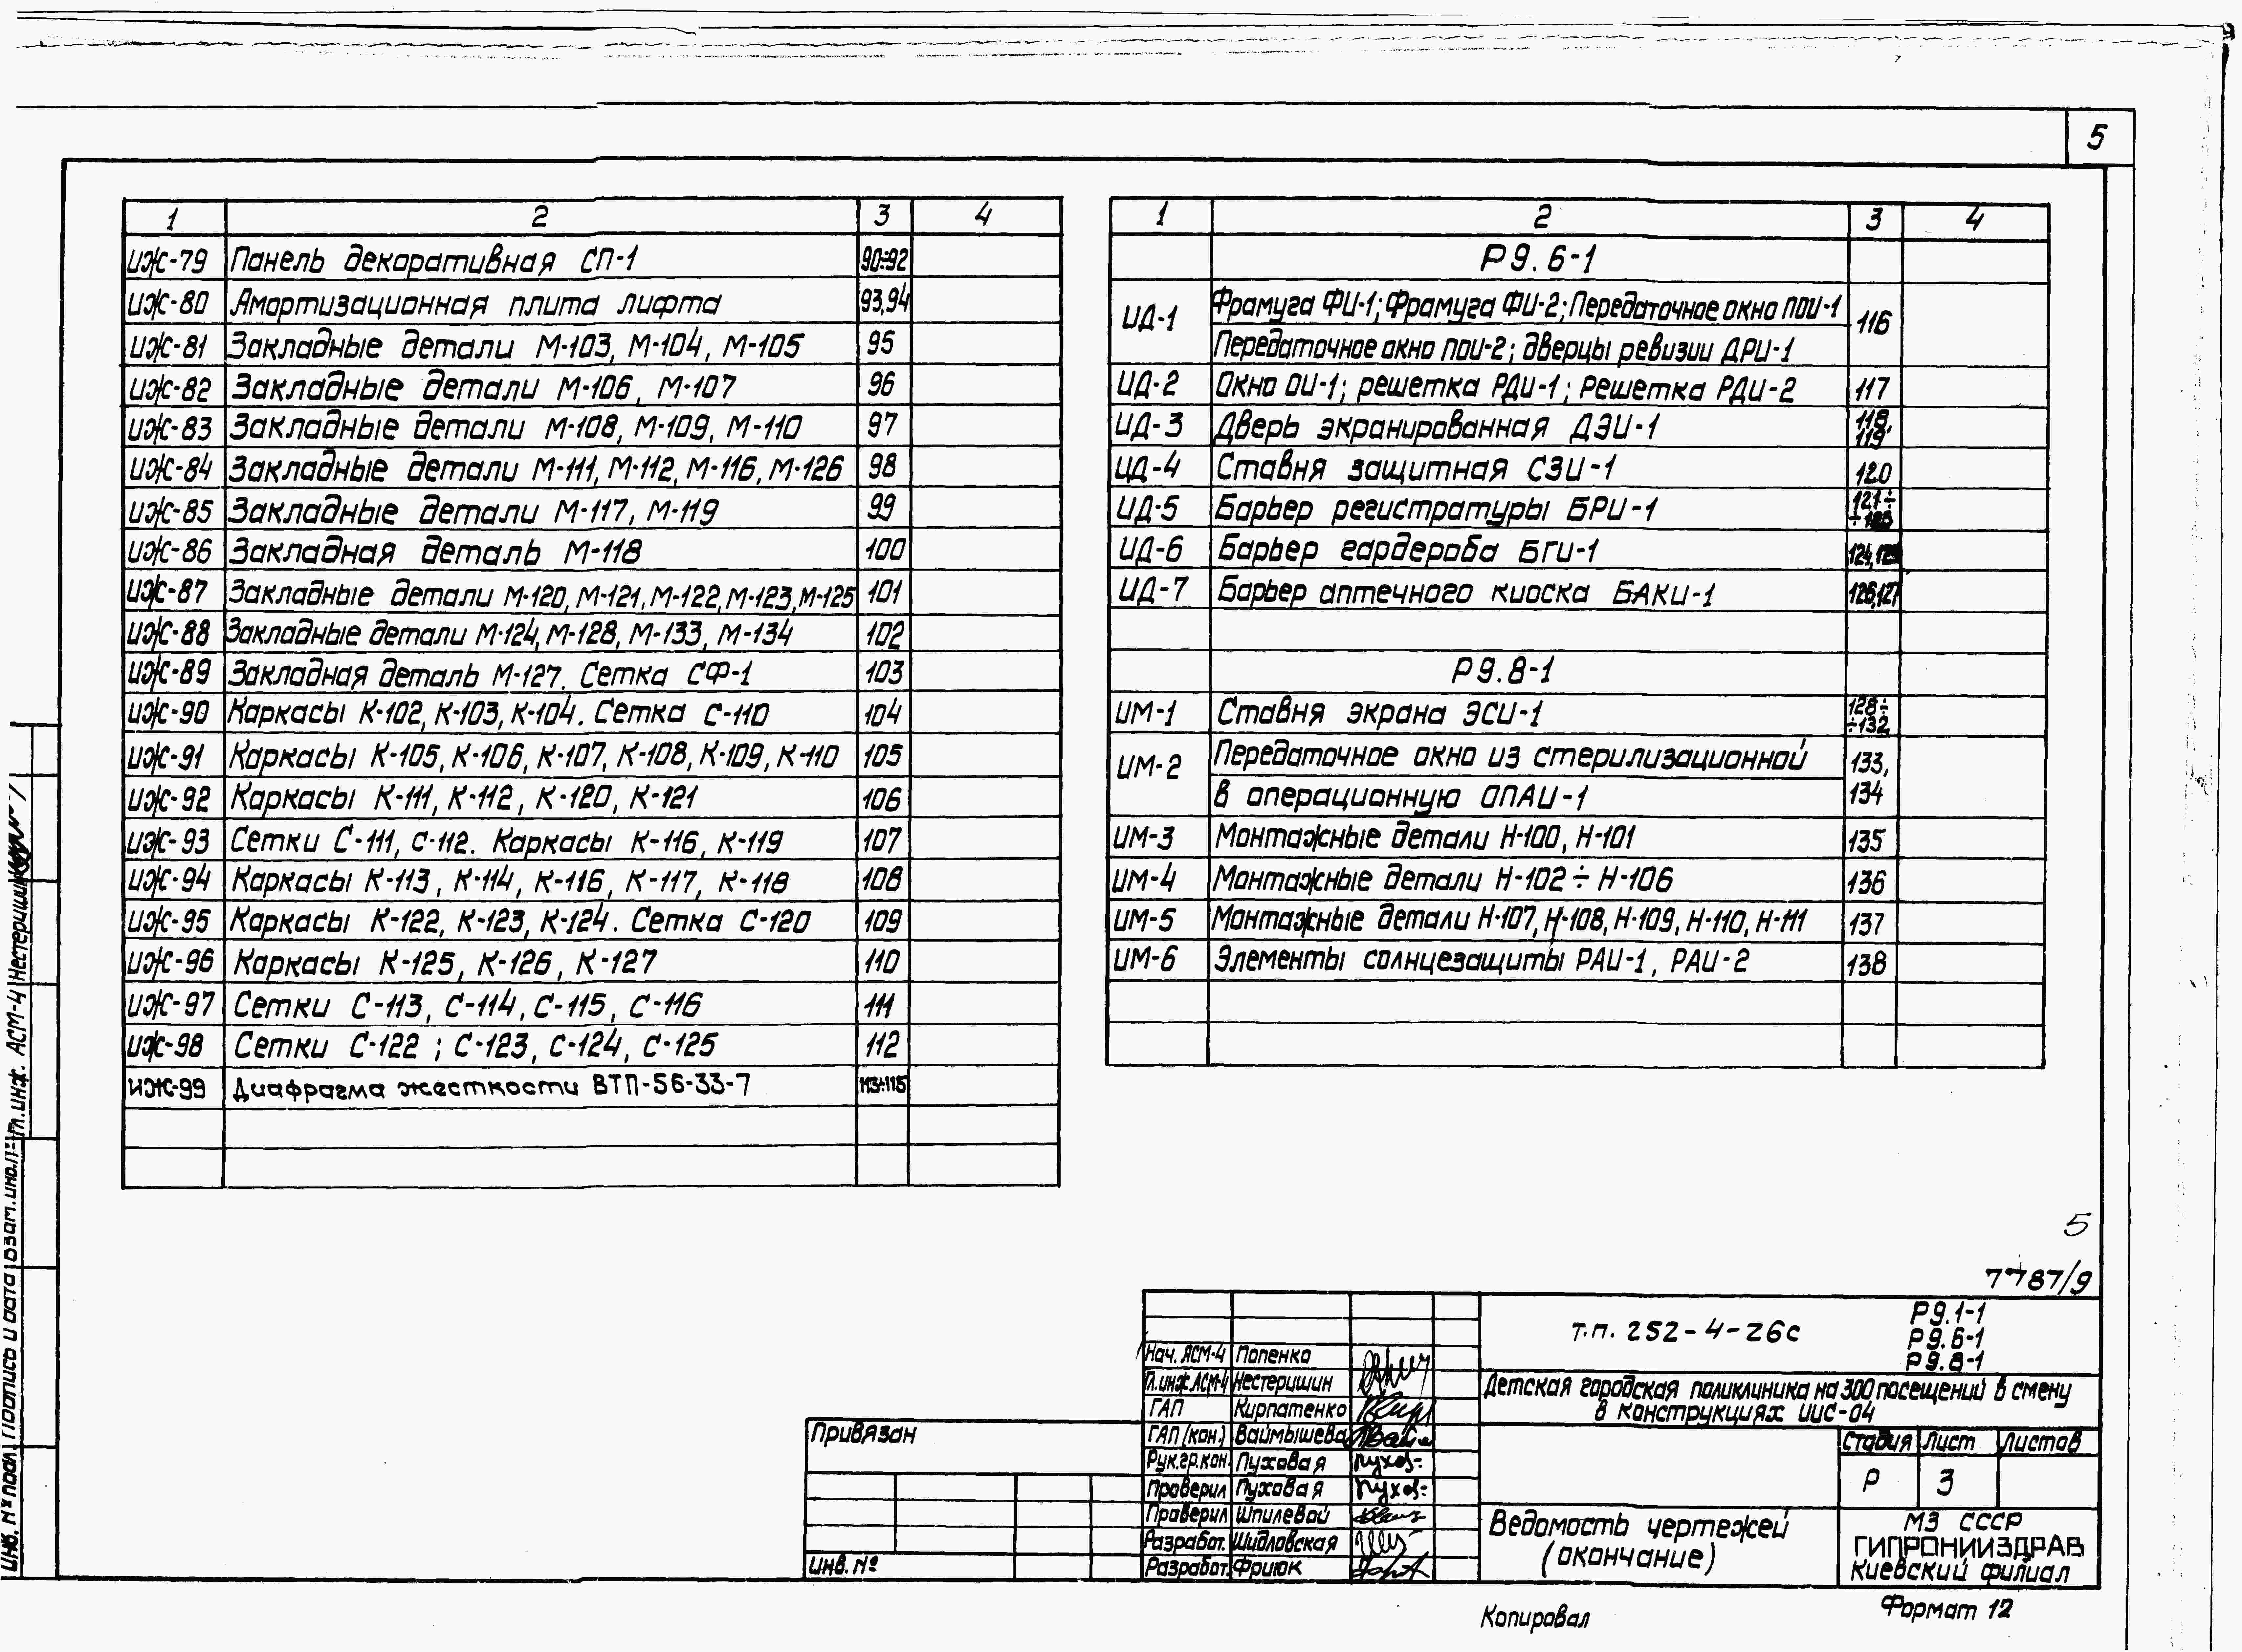 5
1 2 3 4
ИЖ-79 Панель декоративная СП-1 90÷92
ИЖ-80 Амортизационная плита лифта 93,94
ИЖ-81 Закладные детали М-103, М-104, М-105 95
ИЖ-82 Закладные детали М-106, М-107 96
ИЖ-83 Закладные детали М-108, М-109, М-110 97
ИЖ-84 Закладные детали М-111, М-112, М-116, М-126 98
ИЖ-85 Закладные детали М-117, М-119 99
ИЖ-86 Закладная деталь М-118 100
ИЖ-87 Закладные детали М-120, М-121, М-122, М-123, М-125 101
ИЖ-88 Закладные детали М-124, М-128, М-133, М-134 102
ИЖ-89 Закладная деталь М-127. Сетка СФ-1 103
ИЖ-90 Каркасы К-102, К-103, К-104. Сетка С-110 104
ИЖ-91 Каркасы К-105, К-106, К-107, К-108, К-109, К-110 105
ИЖ-92 Каркасы К-111, К-112, К-120, К-121 106
ИЖ-93 Сетки С-111, С-112. Каркасы К-116, К-119 107
ИЖ-94 Каркасы К-113, К-114, К-116, К-117, К-118 108
ИЖ-95 Каркасы К-122, К-123, К-124. Сетка С-120 109
ИЖ-96 Каркасы К-125, К-126, К-127 110
ИЖ-97 Сетки С-113, С-114, С-115, С-116 111
ИЖ-98 Сетки С-122; С-123, С-124, С-125 112
ИЖ-99 Диафрагма жесткости ВТП-56-33-7 113÷115
1 2 3 4
Р9.6-1
ИД-1 Фрамуга ФИ-1; Фрамуга ФИ-2; Передаточное окно ПОИ-1 116
Передаточное окно ПОИ-2; дверцы ревизии ДРИ-1
ИД-2 Окно ОИ-1; решетка РДИ-1; Решетка РДИ-2 117
ИД-3 Дверь экранированная ДЭИ-1 118, 119
ИД-4 Ставня защитная СЗИ-1 120
ИД-5 Барьер регистратуры БРИ-1 121÷ ÷123
ИД-6 Барьер гардероба БГИ-1 124,125
ИД-7 Барьер аптечного киоска БАКИ-1 126,127
Р9.8-1
ИМ-1 Ставня экрана ЭСИ-1 128÷ ÷132
ИМ-2 Передаточное окно из стерилизационной 133,
в операционную ОПАИ-1 134
ИМ-3 Монтажные детали Н-100, Н-101 135
ИМ-4 Монтажные детали Н-102÷Н-106 136
ИМ-5 Монтажные детали Н-107, Н-108, Н-109, Н-110, Н-111 137
ИМ-6 Элементы солнцезащиты РАИ-1, РАИ-2 138
5
7787/9
т.п. 252-4-26с
Р9.1-1
Р9.6-1
Р9.8-1
Детская городская поликлиника на 300 посещений в смену
в конструкциях ИИС-04
Стадия Лист Листов
Р 3
Ведомость чертежей
(окончание)
МЗ СССР
ГИПРОНИИЗДРАВ
Киевский филиал
Нач. АСМ-4 Попенко
Гл.инж.АСМ-4 Нестеришин
ГАП Кирпатенко
ГАП (кон.) Ваймышева
Рук.гр.кон. Пуховая
Проверил Пуховая
Проверил Шпилевой
Разработ. Шидловская
Разработ. Фриюк
Привязан
Инв. №
Копировал
Формат 12
Гл.инж. АСМ-4 Нестеришин
Инв. № подл. Подпись и дата Взам. инв. №